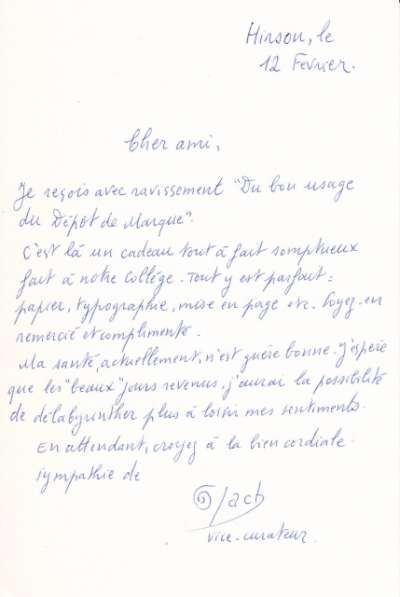 Hirson, le
12 Fevrier.
Cher ami,
Je reçois avec ravissement "Du bon usage
du Dépôt de Marque".
C'est là un cadeau tout à fait somptueux
fait à notre Collège. Tout y est parfait :
papier, typographie, mise en page etc. Soyez-en
remercié et complimenté.
Ma santé, actuellement, n'est guère bonne. J'espère
que les "beaux" jours revenus, j'aurai la possibilité
de délabyrinther plus à loisir mes sentiments.
En attendant, croyez à la bien cordiale
sympathie de
vice-curateur.